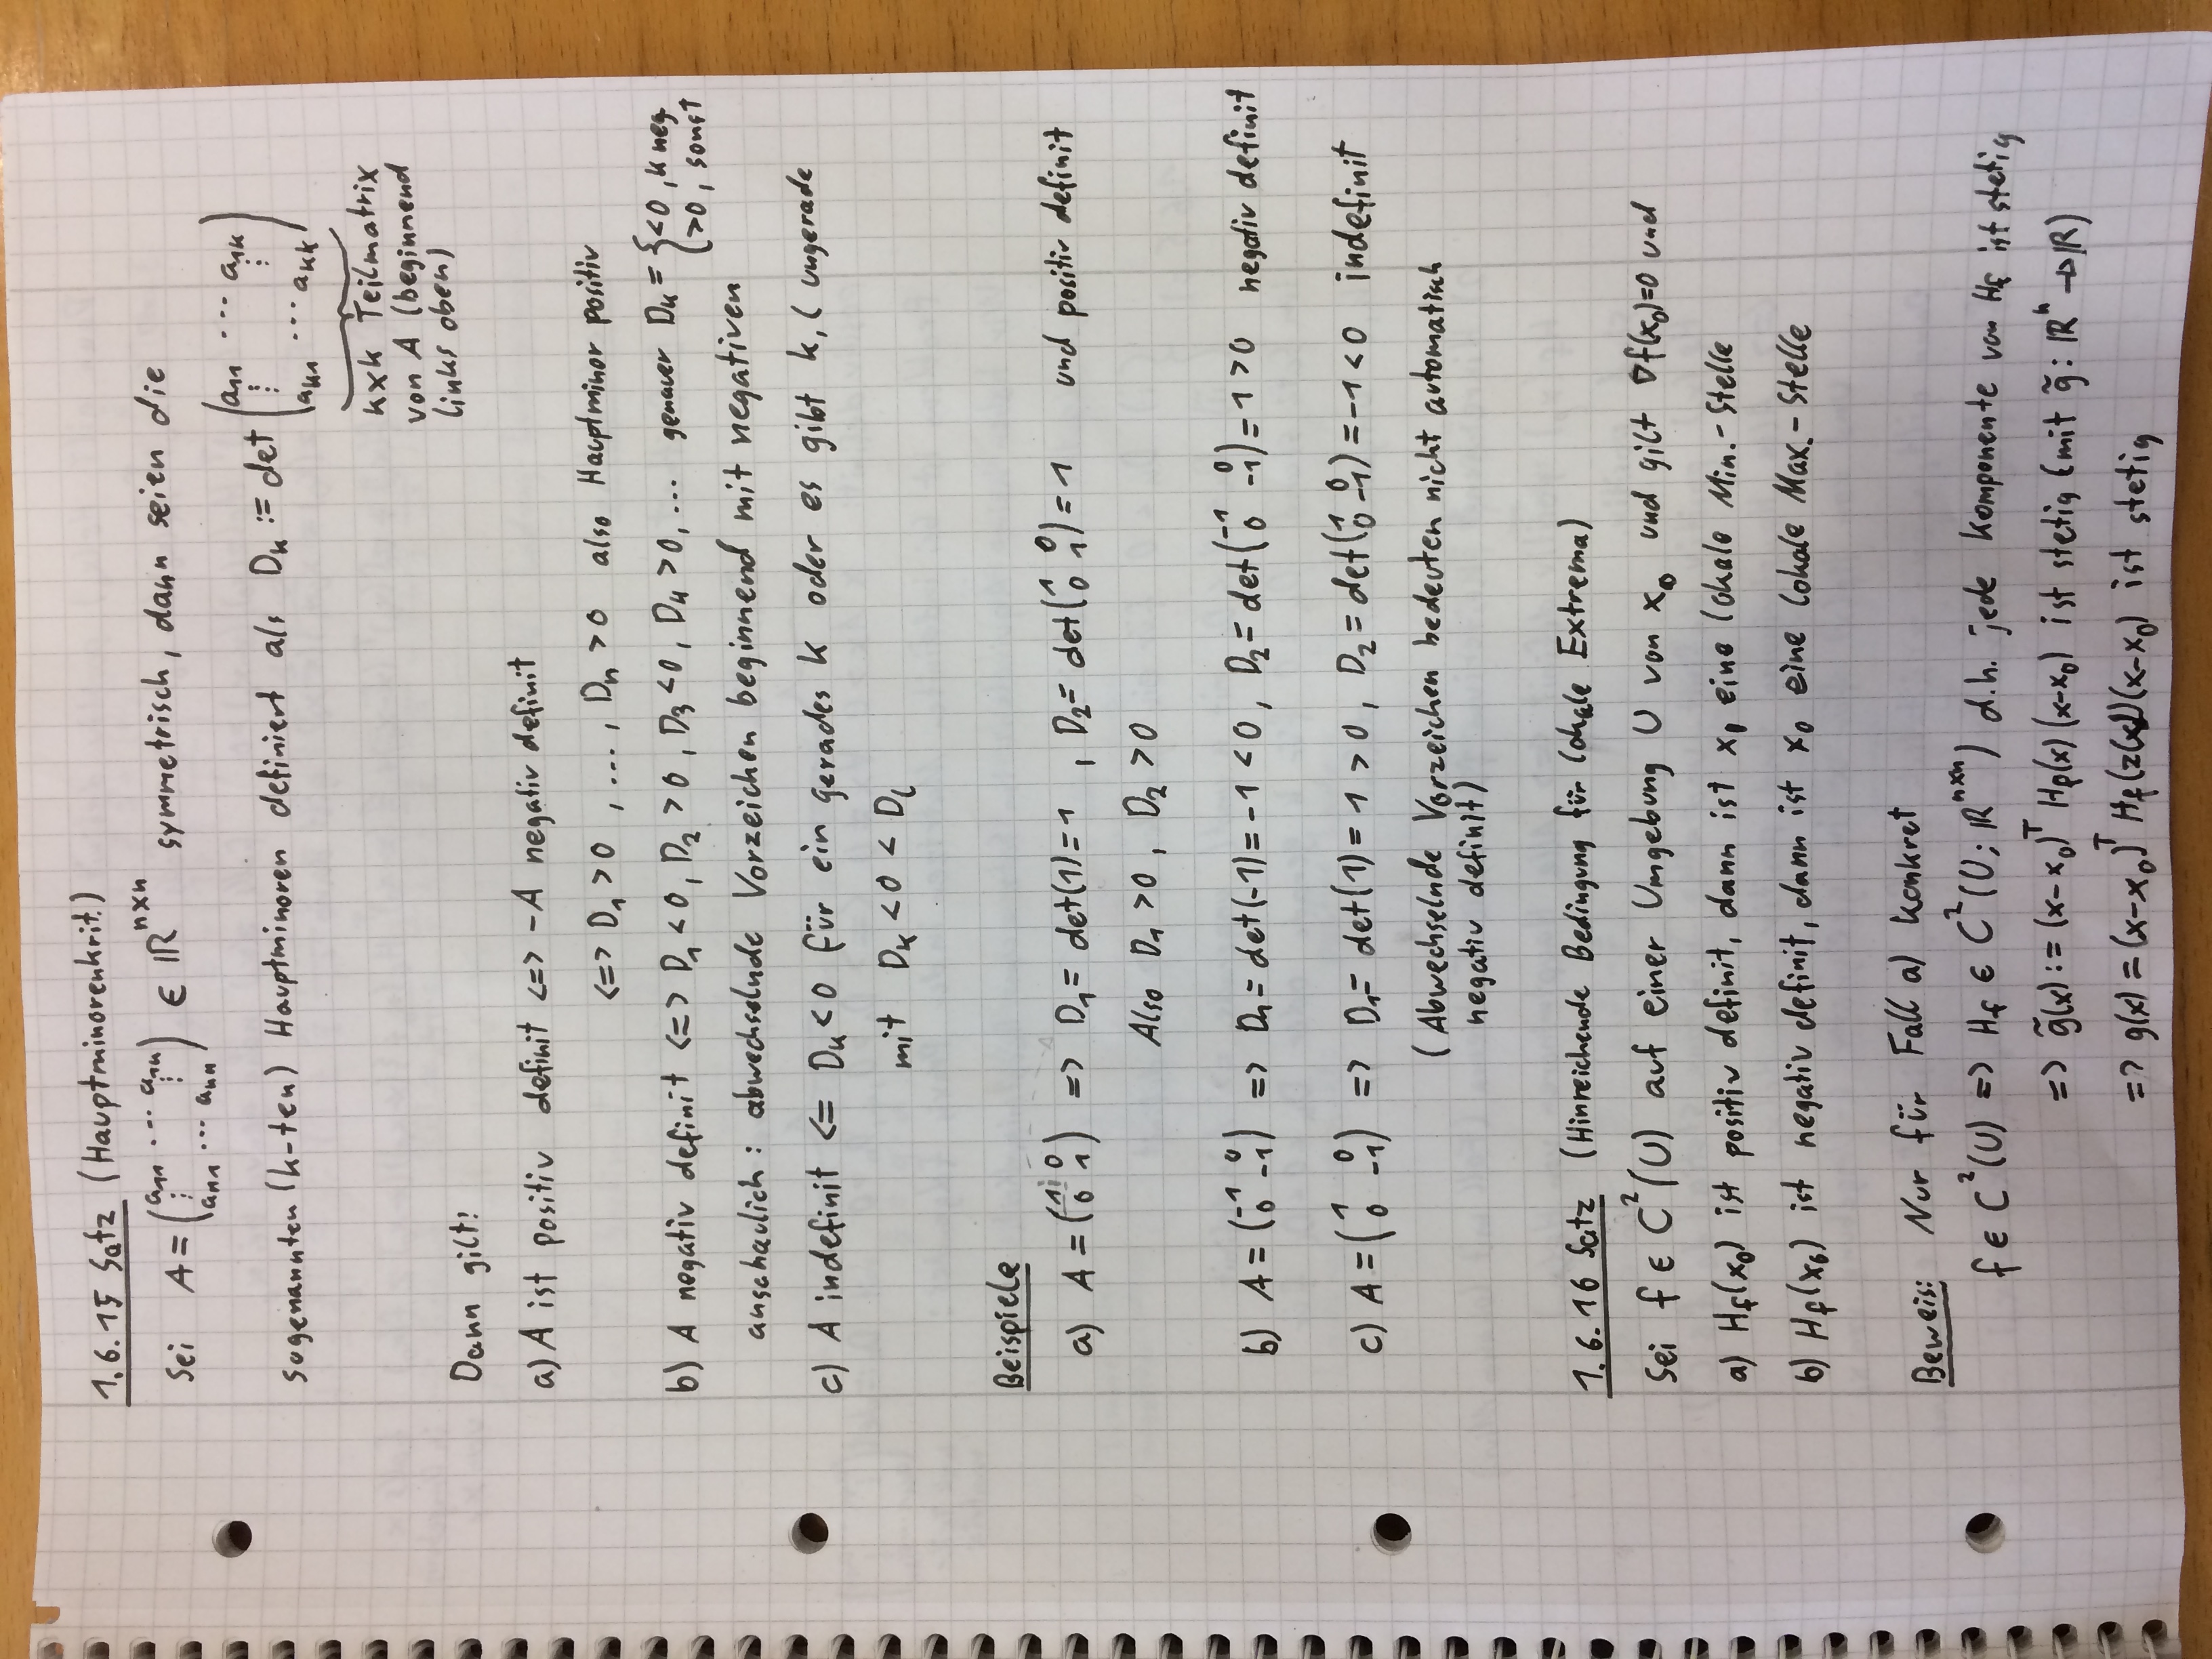 1.6.15 Satz (Hauptminorenkrit.)
Sei A = (a₁₁ ⋯ a₁ₙ ⋮ ⋮ aₙ₁ ⋯ aₙₙ) ∈ ℝⁿˣⁿ symmetrisch, dann seien die
sogenannten (k-ten) Hauptminoren definiert als Dₖ := det (a₁₁ ⋯ a₁ₖ ⋮ ⋮ aₖ₁ ⋯ aₖₖ)
k×k Teilmatrix
von A (beginnend
links oben)
Dann gilt:
a) A ist positiv definit <=> -A negativ definit
<=> D₁ > 0 , ..., Dₙ > 0 also Hauptminor positiv
b) A negativ definit <=> D₁ < 0, D₂ > 0, D₃ < 0, D₄ > 0, ... genauer Dₖ = { <0, k neg.
>0, sonst
anschaulich: abwechselnde Vorzeichen beginnend mit negativen
c) A indefinit <= Dₖ < 0 für ein gerades k oder es gibt k, l ungerade
mit Dₖ < 0 < Dₗ
Beispiele
a) A = (1 0 0 1) => D₁ = det(1) = 1 , D₂ = det(1 0 0 1) = 1 und positiv definit
Also D₁ > 0, D₂ > 0
b) A = (-1 0 0 -1) => D₁ = det(-1) = -1 < 0, D₂ = det(-1 0 0 -1) = 1 > 0 negativ definit
c) A = (1 0 0 -1) => D₁ = det(1) = 1 > 0, D₂ = det(1 0 0 -1) = -1 < 0 indefinit
(Abwechselnde Vorzeichen bedeuten nicht automatisch
negativ definit)
1.6.16 Satz (Hinreichende Bedingung für lokale Extrema)
Sei f ∈ C²(U) auf einer Umgebung U von x₀ und gilt ∇f(x₀)=0 und
a) H_f(x₀) ist positiv definit, dann ist x₀ eine lokale Min.-Stelle
b) H_f(x₀) ist negativ definit, dann ist x₀ eine lokale Max.-Stelle
Beweis: Nur für Fall a) konkret
f ∈ C²(U) => H_f ∈ C²(U; ℝⁿˣⁿ) d.h. jede Komponente von H_f ist stetig
=> g̃(x) := (x-x₀)ᵀ H_f(x) (x-x₀) ist stetig (mit g̃: ℝⁿ → ℝ)
=> g(x) = (x-x₀)ᵀ H_f(z(x))(x-x₀) ist stetig